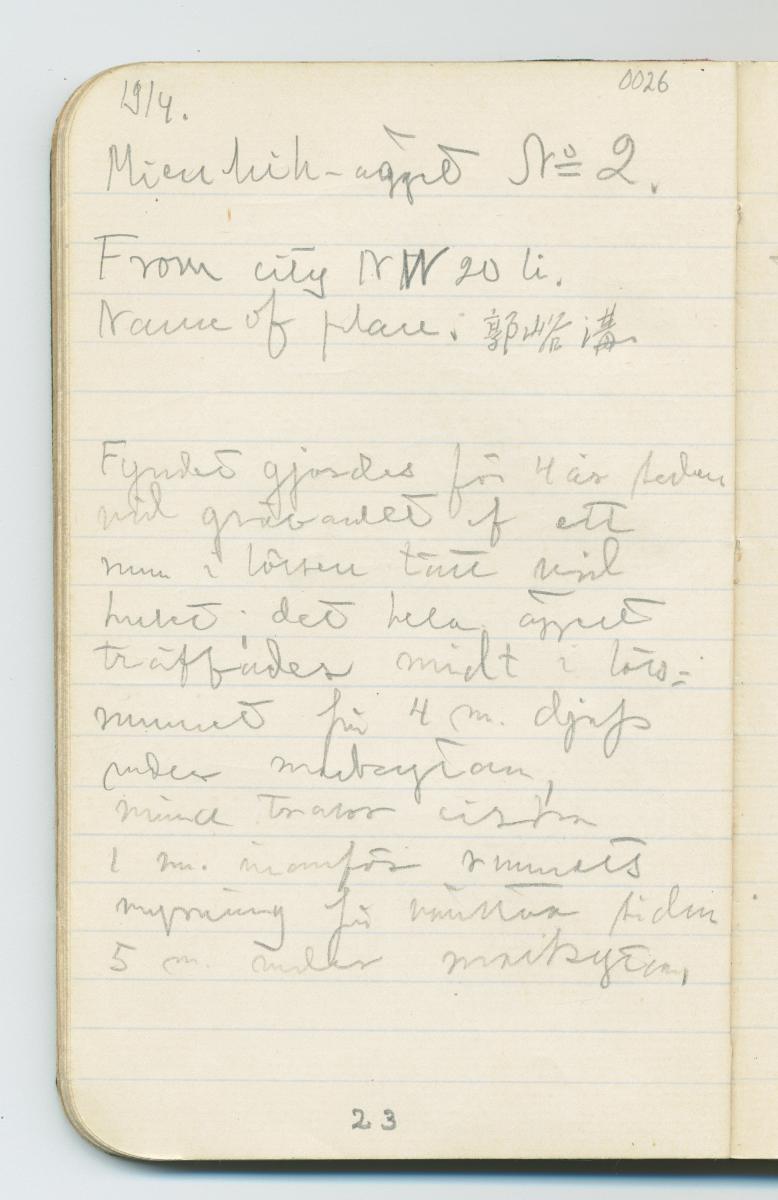 0026
19/4.
Mien hih-ägget No 2.
From city NW 20 li.
Name of place: 郭峪溝
Fyndet gjordes för 4 år sedan
vid grävandet af ett
rum i lössen tätt vid
huset; det hela ägget
träffades midt i löss-
rummet på 4 m. djup
under markytan,
cirka
1 m. innanför rummets
mynning på vänstra sidan
5 m. under markytan,
23